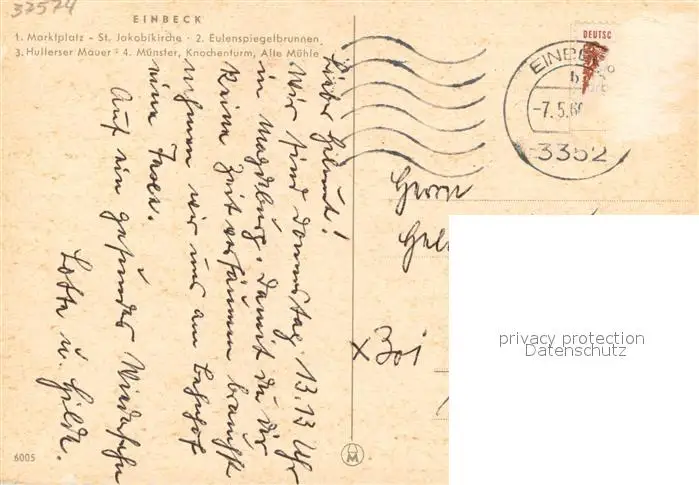 37574
EINBECK
1. Marktplatz - St. Jakobikirche · 2. Eulenspiegelbrunnen
3. Hullerser Mauer · 4. Münster, Knochenturm, Alte Mühle
Lieber Helmut!
Wir sind Donnerstag 13.13 Uhr
in Magdeburg. Damit du Dir
keine Zeit versäumen brauchst
nehmen wir uns am Bahnhof
eine Taxe.
Auf ein gesundes Wiedersehn
Lotte u. Hilde.
DEUTSC
EINBE
b
-7.5.6
3352
Herrn
Hel
x 301
privacy protection
Datenschutz
6005